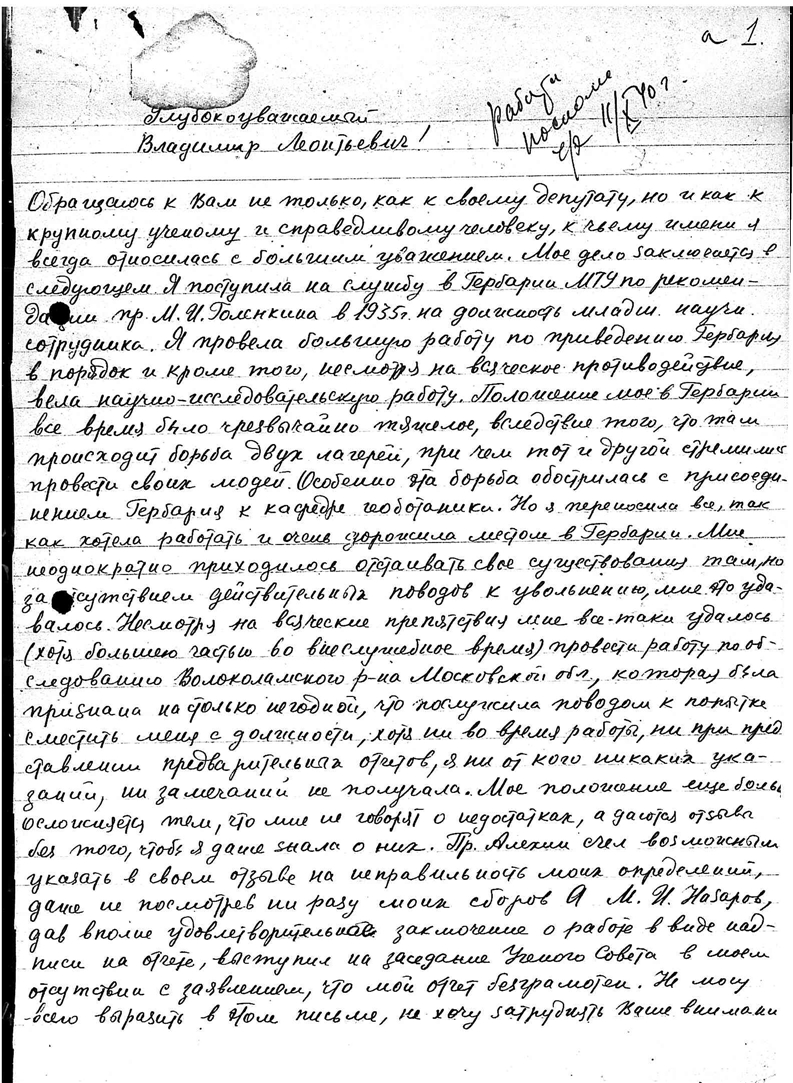 а 1.
Глубокоуважаемый
Владимир Леонтьевич!
11/X 40 г.
Обращаюсь к Вам не только, как к своему депутату, но и как к
крупному ученому и справедливому человеку, к чьему имени я
всегда относилась с большим уважением. Мое дело заключается в
следующем. Я поступила на службу в Гербарий МГУ по рекомен-
дации пр. М. И. Голенкина в 1935 г. на должность младш. научн.
сотрудника. Я провела большую работу по приведению Гербария
в порядок и кроме того, несмотря на всяческое противодействие,
вела научно-исследовательскую работу. Положение мое в Гербарии
все время было чрезвычайно тяжелое, вследствие того, что там
происходит борьба двух лагерей, при чем тот и другой стремились
провести своих людей. Особенно эта борьба обострилась с присоеди-
нением Гербария к кафедре геоботаники. Но я переносила все, так
как хотела работать и очень дорожила местом в Гербарии. Мне
неоднократно приходилось отстаивать свое существование там, но
за отсутствием действительных поводов к увольнению, мне это уда-
валось. Несмотря на всяческие препятствия мне все-таки удалось
(хотя большею частью во внеслужебное время) провести работу по об-
следованию Волоколамского р-на Московской обл., которая была
признана настолько негодной, что послужила поводом к попытке
сместить меня с должности, хотя ни во время работы, ни при пред
ставлении предварительных отчетов, я ни от кого никаких ука-
заний, ни замечаний не получала. Мое положение еще больш
осложняется тем, что мне не говорят о недостатках, а даются отзывы
без того, чтобы я даже знала о них. Пр. Алехин счел возможным
указать в своем отзыве на неправильность моих определений,
даже не посмотрев ни разу моих сборов А М. И. Назаров,
дав вполне удовлетворительное заключение о работе в виде над-
писи на отчете, выступил на заседание Ученого Совета в моем
отсутствии с заявлением, что мой отчет безграмотен. Не могу
всего выразить в этом письме, не хочу затруднять Ваше внимани